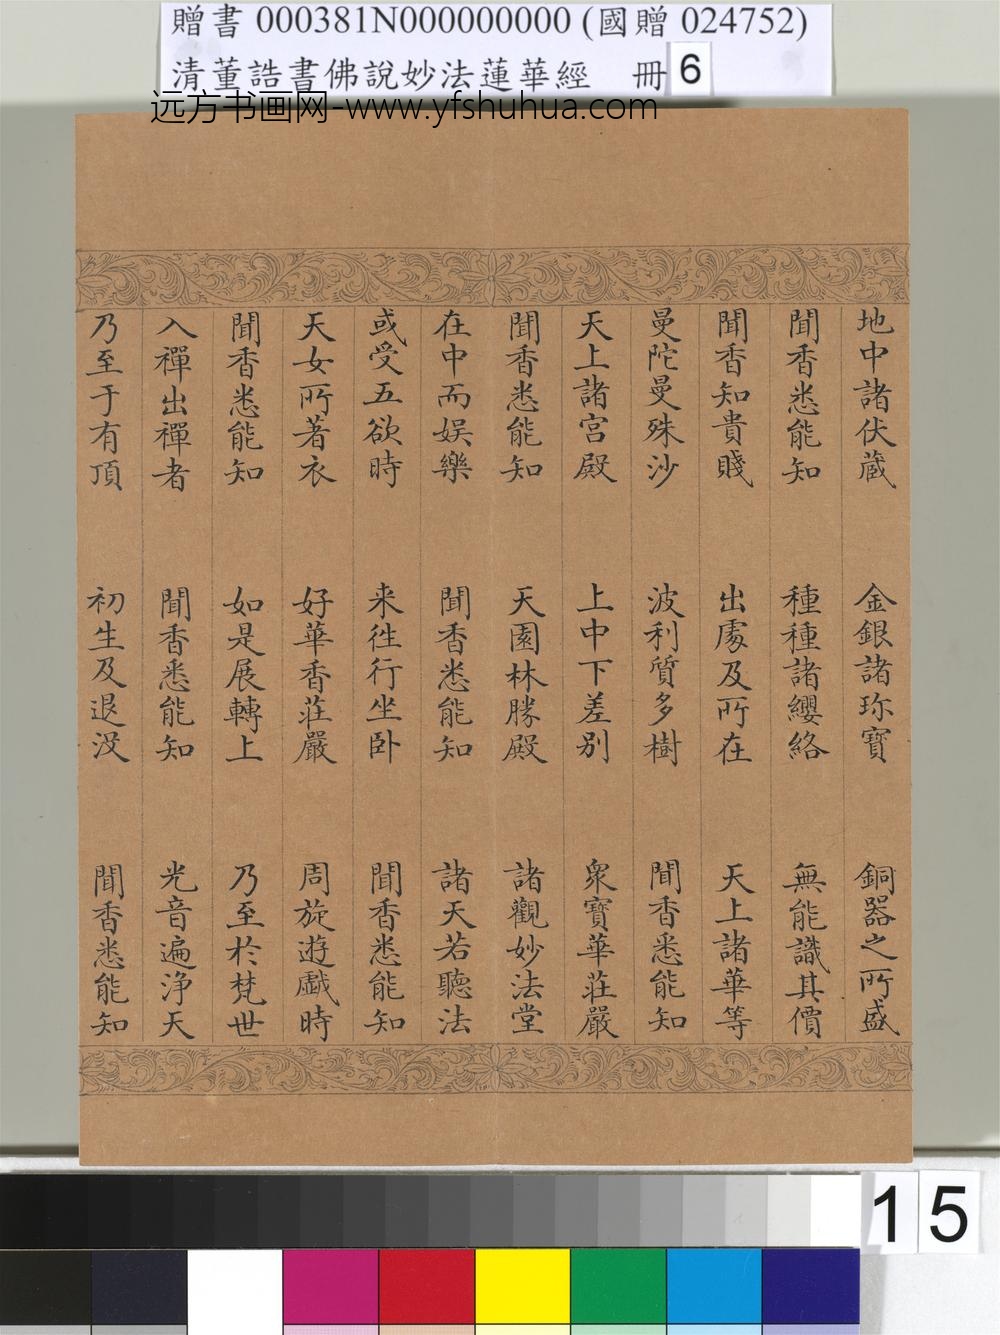 贈書 000381N000000000 (國贈 024752)
清董誥書佛說妙法蓮華經 冊 6
远方书画网-www.yfshuhua.com
地中諸伏藏 金銀諸珎寶 銅器之所盛
聞香悉能知 種種諸纓絡 無能識其價
聞香知貴賤 出處及所在 天上諸華等
曼陀曼殊沙 波利質多樹 聞香悉能知
天上諸宮殿 上中下差别 衆寶華莊嚴
聞香悉能知 天園林勝殿 諸觀妙法堂
在中而娛樂 聞香悉能知 諸天若聽法
或受五欲時 来往行坐卧 聞香悉能知
天女所著衣 好華香莊嚴 周旋遊戲時
聞香悉能知 如是展轉上 乃至於梵世
入禪出禪者 聞香悉能知 光音遍淨天
乃至于有頂 初生及退没 聞香悉能知
15